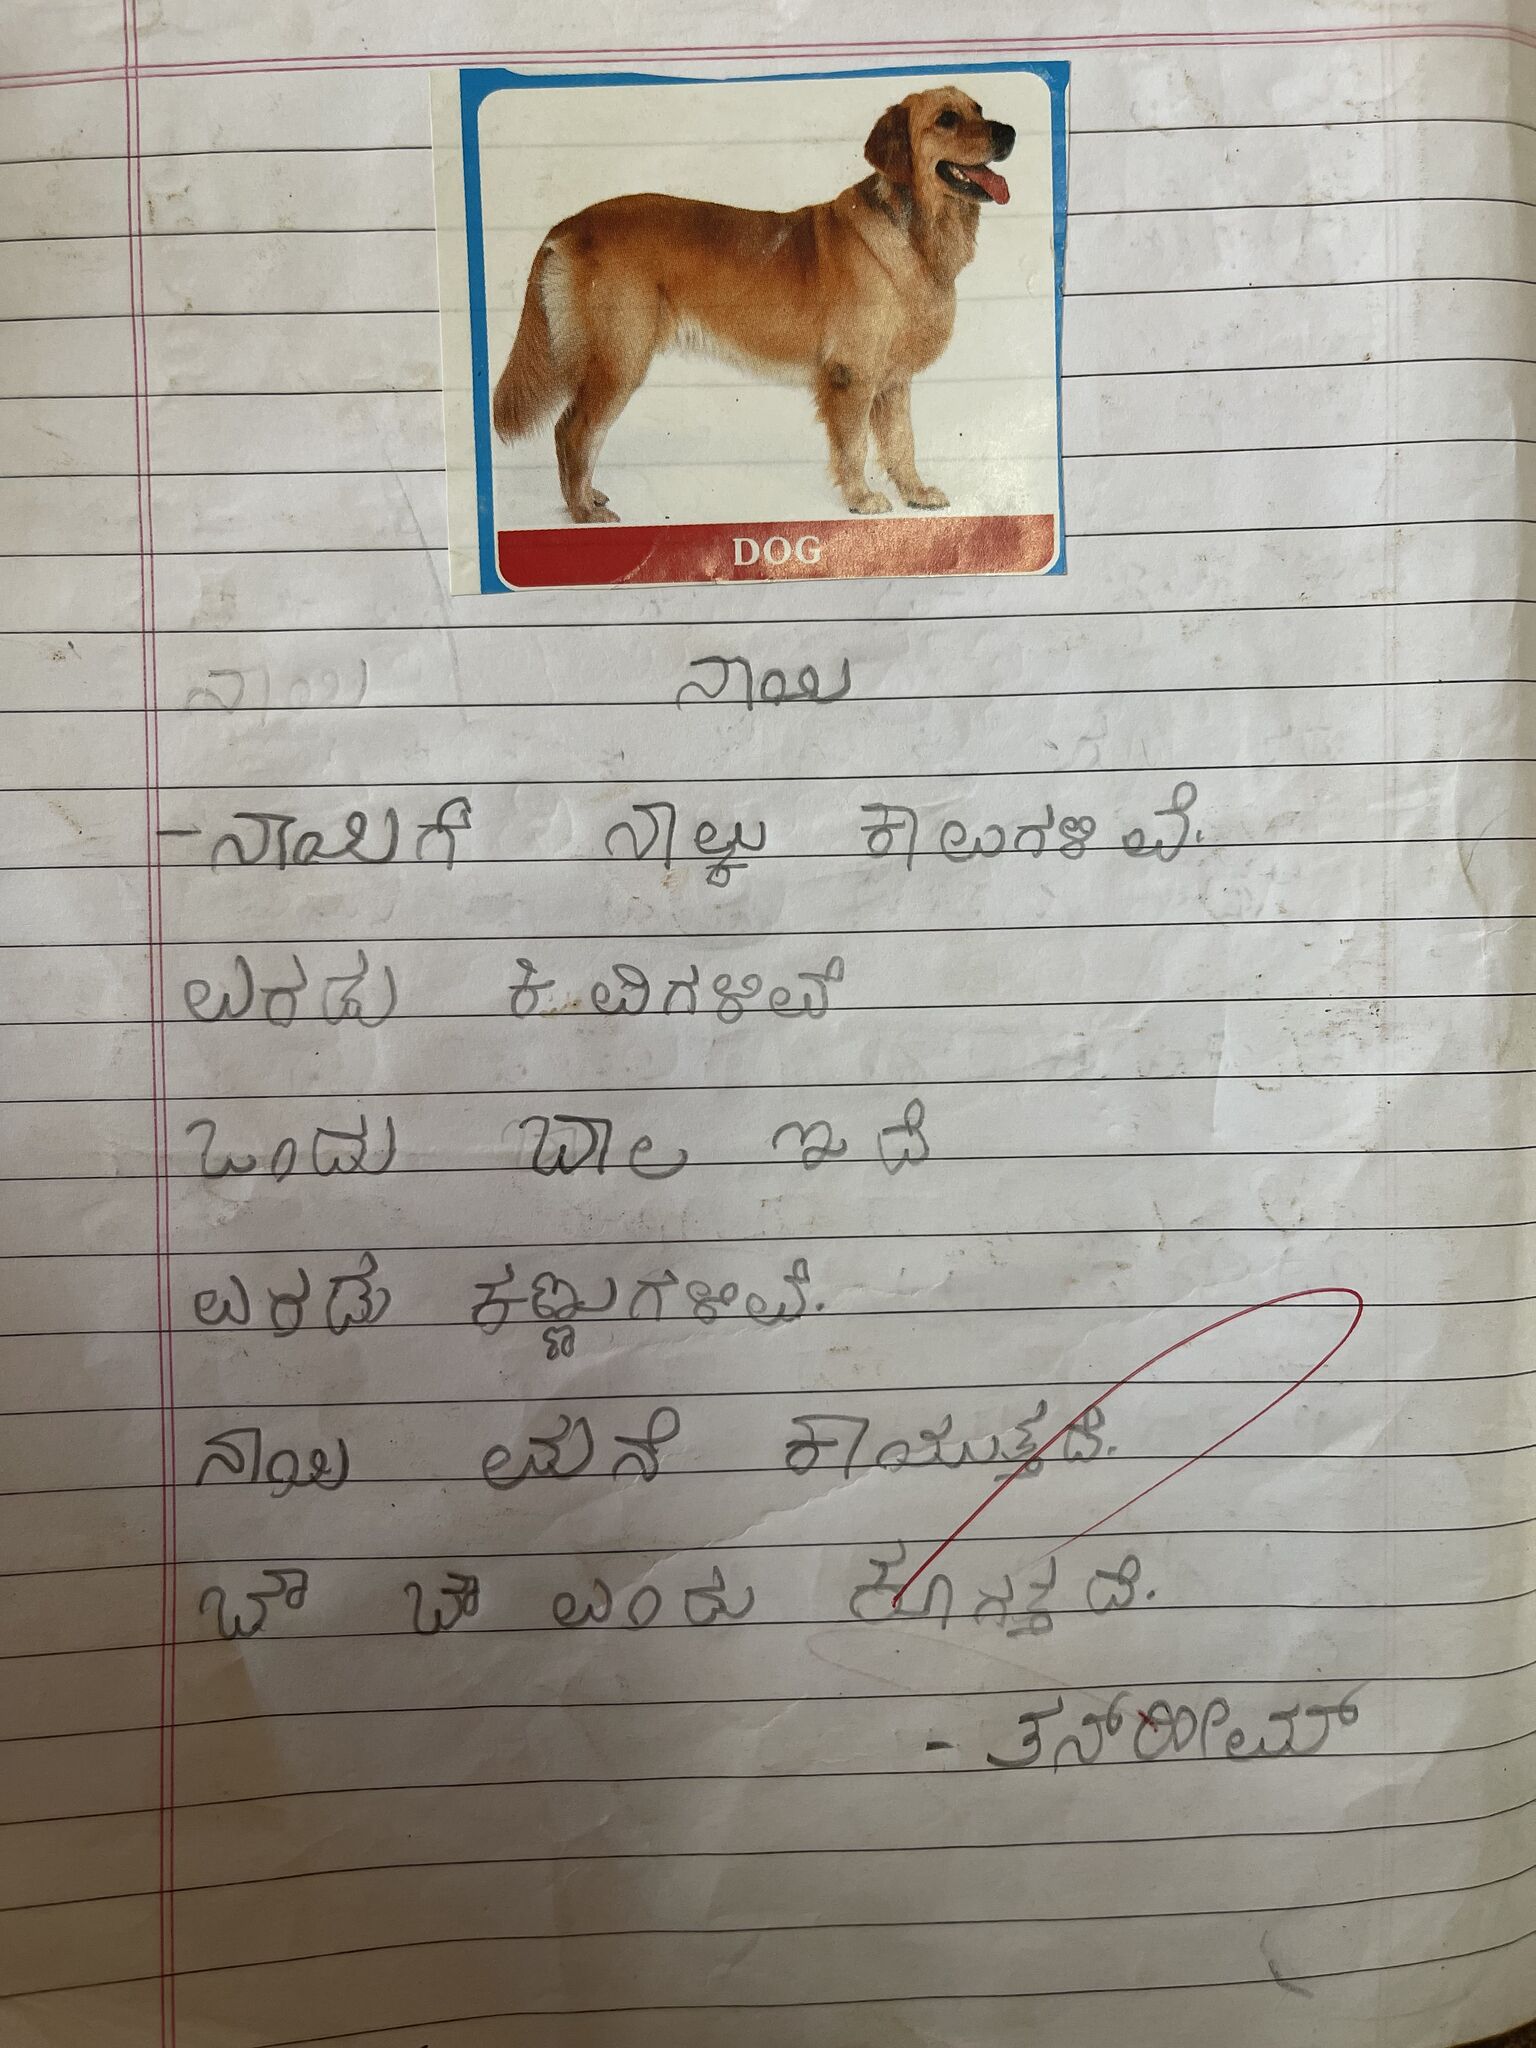 DOG
ನಾಯಿ ನಾಯಿ
- ನಾಯಿಗೆ ನಾಲ್ಕು ಕಾಲುಗಳಿವೆ.
ಎರಡು ಕಿವಿಗಳಿವೆ
ಒಂದು ಬಾಲ ಇದೆ
ಎರಡು ಕಣ್ಣುಗಳಿವೆ.
ನಾಯಿ ಮನೆ ಕಾಯುತ್ತದೆ.
ಬೌ ಬೌ ಎಂದು ಕೂಗತ್ತದೆ.
- ತನ್ಝೀಮ್